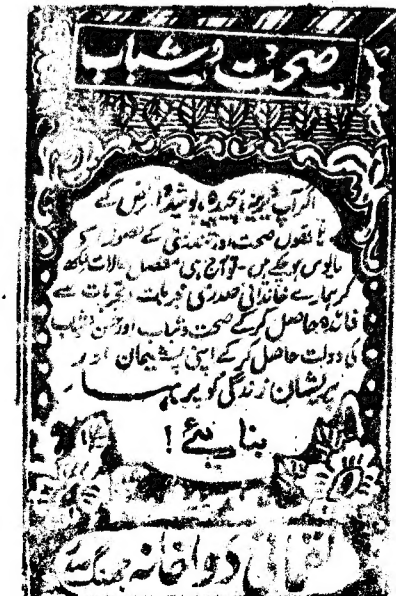 صحت و شباب
اگر آپ پیچیدہ، پوشیدہ امراض کے
ہاتھوں صحت اور تندرستی کے تصور سے
مایوس ہو چکے ہیں۔ تو آج ہی مفصل حالات لکھ
کر ہمارے خاندانی صدری مجربات و تجربات سے
فائدہ حاصل کر کے صحت و شباب اور
کی دولت حاصل کر کے اپنی پشیمان اور
پریشان زندگی کو پر بہار
بنائیے!
لقمانی دواخانہ جھنگ صدر